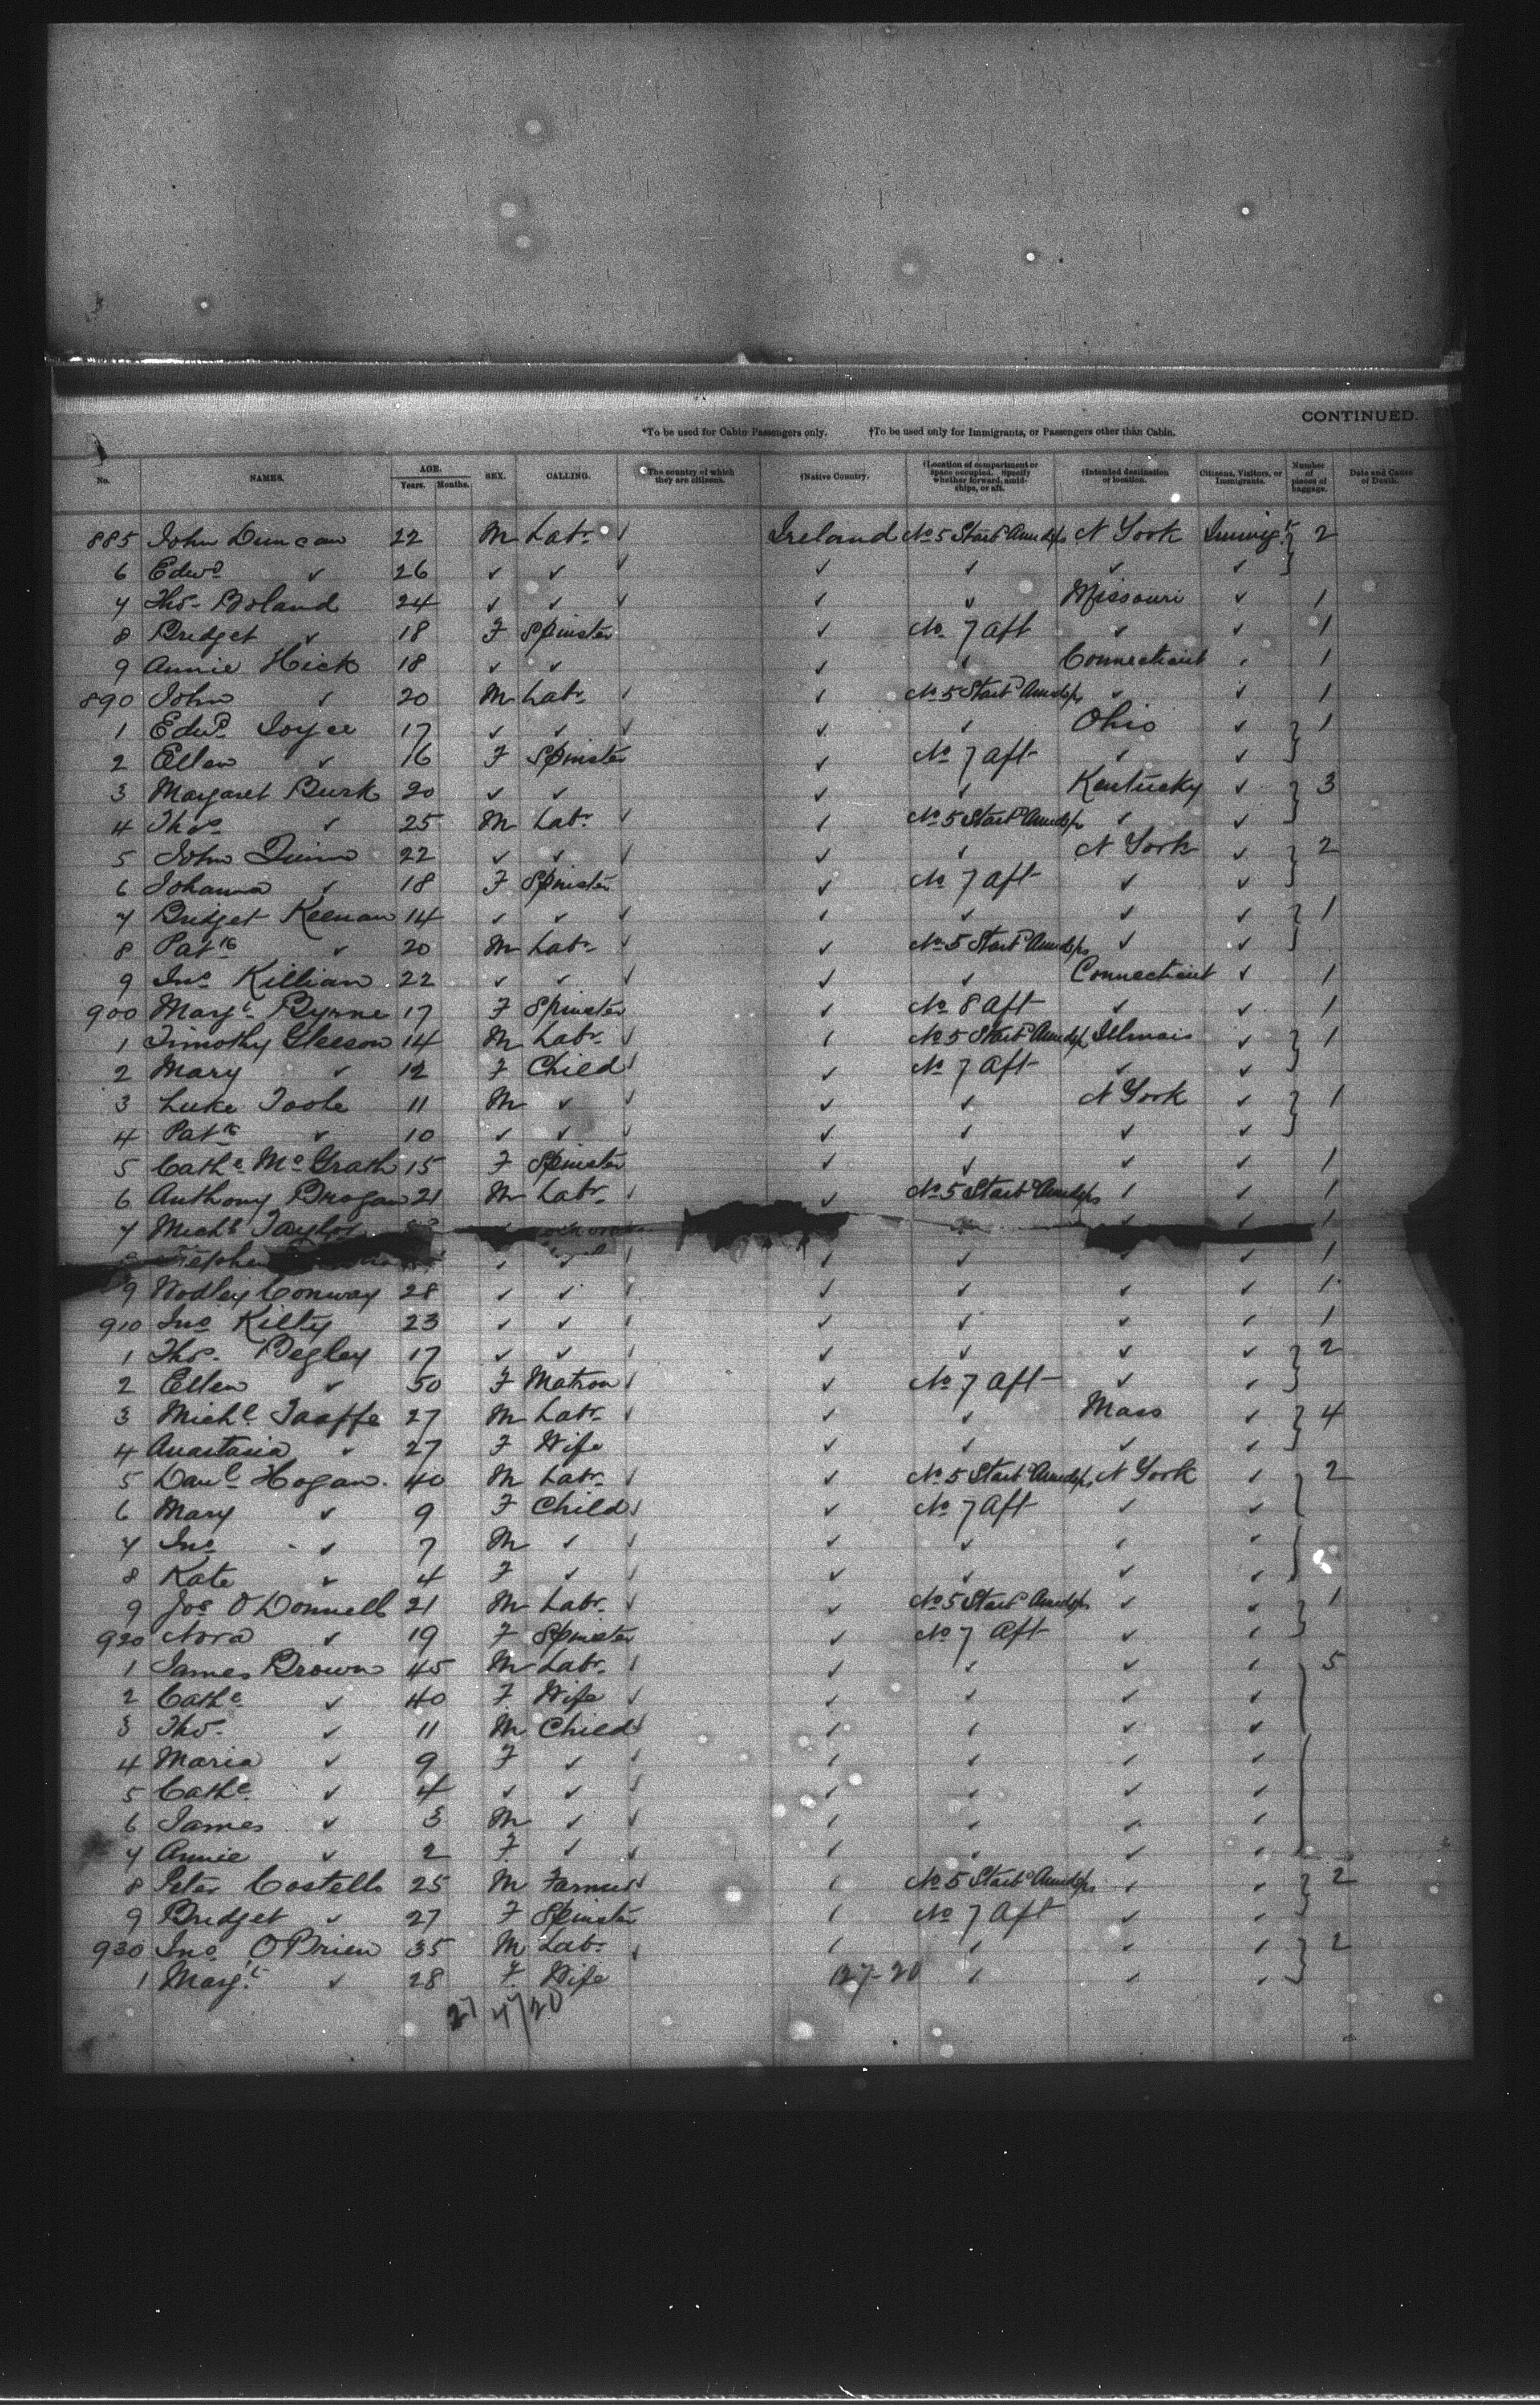 CONTINUED.
*To be used for Cabin Passengers only. †To be used only for Immigrants, or Passengers other than Cabin.
No. NAMES. AGE. Years. Months. SEX. CALLING. *The country of which they are citizens. †Native Country. †Location of compartment or space occupied. Specify whether forward, amidships, or aft. †Intended destination or location. Citizens, Visitors, or Immigrants. Number of pieces of baggage. Date and Cause of Death.
885 John Duncan 22 M Labr. ✓ Ireland No 5 Starbd Amidps N York Immigt } 2
6 Edwd ✓ 26 ✓ ✓ ✓ ✓ ✓ ✓ ✓
7 Thos. Boland 24 ✓ ✓ ✓ ✓ ✓ Missouri ✓ 1
8 Bridget ✓ 18 F Spinster ✓ No 7 Aft ✓ ✓ 1
9 Annie Hick 18 ✓ ✓ ✓ ✓ Connecticut ✓ 1
890 John ✓ 20 M Labr. ✓ ✓ No 5 Starbd Amidps ✓ ✓ 1
1 Edwd. Joyce 17 ✓ ✓ ✓ ✓ ✓ Ohio ✓ } 1
2 Ellen ✓ 16 F Spinster ✓ No 7 Aft ✓ ✓
3 Margaret Burk 20 ✓ ✓ ✓ ✓ Kentucky ✓ } 3
4 Thos ✓ 25 M Labr. ✓ ✓ No 5 Starbd Amidps ✓ ✓
5 John Quinn 22 ✓ ✓ ✓ ✓ ✓ N York ✓ } 2
6 Johanna ✓ 18 F Spinster ✓ No 7 Aft ✓ ✓
7 Bridget Keenan 14 ✓ ✓ ✓ ✓ ✓ ✓ ✓ } 1
8 Patk ✓ 20 M Labr. ✓ ✓ No 5 Starbd Amidps ✓ ✓
9 Jno Killian 22 ✓ ✓ ✓ ✓ ✓ Connecticut ✓ 1
900 Margt. Byrne 17 F Spinster ✓ No 8 Aft ✓ ✓ 1
1 Timothy Gleeson 14 M Labr. ✓ ✓ No 5 Starbd Amidps Illinois ✓ } 1
2 Mary ✓ 12 F Child ✓ ✓ No 7 Aft ✓ ✓
3 Luke Toole 11 M ✓ ✓ ✓ ✓ N York ✓ } 1
4 Patk ✓ 10 ✓ ✓ ✓ ✓ ✓ ✓ ✓
5 Cathe McGrath 15 F Spinster ✓ ✓ ✓ ✓ 1
6 Anthony Brogan 21 M Labr. ✓ ✓ No 5 Starbd Amidps ✓ ✓ 1
7 Michl Taylor ✓ ✓ 1
Stephen ✓ ✓ ✓ ✓ ✓ ✓ ✓ 1
9 Wodley Conway 28 ✓ ✓ ✓ ✓ ✓ ✓ ✓ 1
910 Jno Kilty 23 ✓ ✓ ✓ ✓ ✓ ✓ ✓ 1
1 Thos. Begley 17 ✓ ✓ ✓ ✓ ✓ ✓ ✓ } 2
2 Ellen ✓ 50 F Matron ✓ ✓ No 7 Aft ✓ ✓
3 Michl Taaffe 27 M Labr. ✓ ✓ ✓ Mass ✓ } 4
4 Anastasia ✓ 27 F Wife ✓ ✓ ✓ ✓
5 Danl Hogan 40 M Labr. ✓ ✓ No 5 Starbd Amidps N York ✓ } 2
6 Mary ✓ 9 F Child ✓ ✓ No 7 Aft ✓ ✓
7 Jno ✓ 7 M ✓ ✓ ✓ ✓ ✓ ✓
8 Kate ✓ 4 F ✓ ✓ ✓ ✓ ✓ ✓
9 Jos O'Donnell 21 M Labr. ✓ ✓ No 5 Starbd Amidps ✓ ✓ } 1
920 Nora ✓ 19 F Spinster ✓ No 7 Aft ✓ ✓
1 James Brown 45 M Labr. ✓ ✓ ✓ ✓ ✓ } 5
2 Cathe ✓ 40 F Wife ✓ ✓ ✓ ✓ ✓
3 Thos. ✓ 11 M Child ✓ ✓ ✓ ✓ ✓
4 Maria ✓ 9 F ✓ ✓ ✓ ✓ ✓ ✓
5 Cathe. ✓ 4 ✓ ✓ ✓ ✓ ✓ ✓ ✓
6 James ✓ 3 M ✓ ✓ ✓ ✓ ✓ ✓
7 Annie ✓ 2 F ✓ ✓ ✓ ✓ ✓ ✓
8 Peter Costello 25 M Farmer ✓ ✓ No 5 Starbd Amidps ✓ ✓ } 2
9 Bridget ✓ 27 F Spinster ✓ No 7 Aft ✓ ✓
930 Jno O'Brien 35 M Labr. ✓ ✓ ✓ ✓ ✓ } 2
1 Margt. ✓ 28 F Wife 127-20 ✓ ✓ ✓
27 47/20